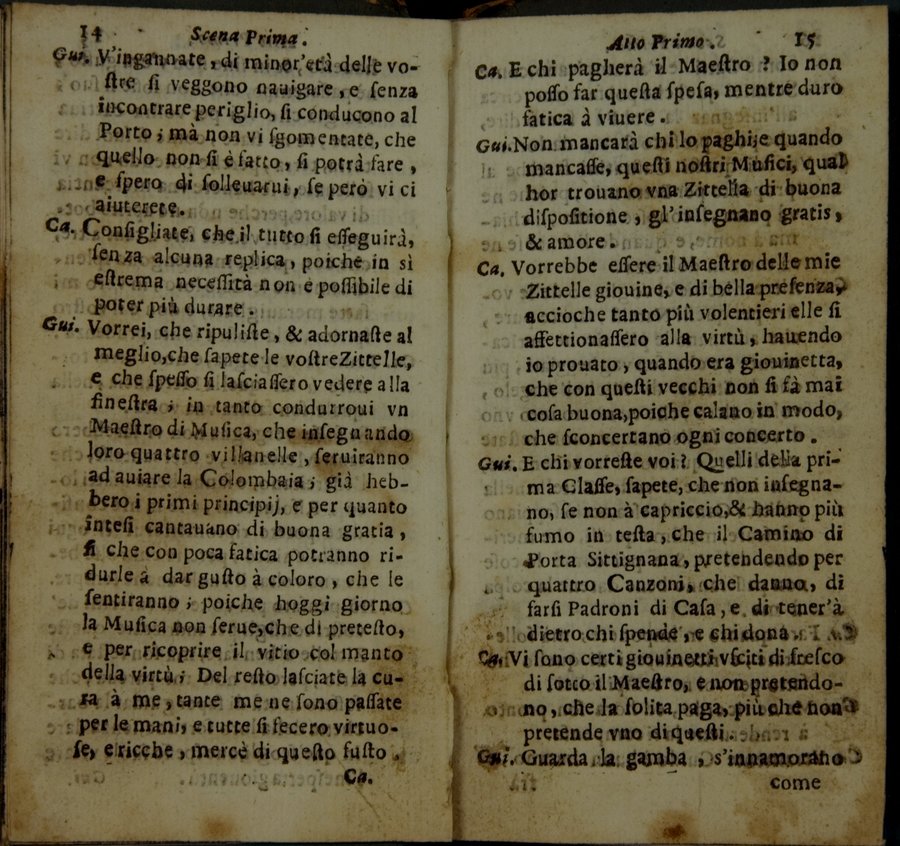 14 Scena Prima.
Gui. V'ingannate, di minor'età delle vo-
ſtre ſi veggono nauigare, e ſenza
incontrare periglio, ſi conducono al
Porto; mà non vi ſgomentate, che
quello non ſi è fatto, ſi potrà fare,
e ſpero di ſolleuarui, ſe però vi ci
aiuterete.
Ca. Conſigliate, che il tutto ſi eſſeguirà,
ſenza alcuna replica, poiche in sì
eſtrema neceſſità non è poſſibile di
poter più durare.
Gui. Vorrei, che ripuliſte, & adornaſte al
meglio, che ſapete le voſtre Zittelle,
e che ſpeſſo ſi laſciaſſero vedere alla
fineſtra; in tanto condurroui vn
Maeſtro di Muſica, che inſegnando
loro quattro villanelle, ſeruiranno
ad auiare la Colombaia; già heb-
bero i primi principij, e per quanto
inteſi cantauano di buona gratia,
ſi che con poca fatica potranno ri-
durle à dar guſto à coloro, che le
ſentiranno; poiche hoggi giorno
la Muſica non ſerue, che di preteſto,
e per ricoprire il vitio col manto
della virtù; Del reſto laſciate la cu-
ra à me, tante me ne ſono paſſate
per le mani, e tutte ſi fecero virtuo-
ſe, e ricche, mercè di queſto fuſto.
Ca.
Atto Primo. 15
Ca. E chi pagherà il Maeſtro? Io non
poſſo far queſta ſpeſa, mentre duro
fatica à viuere.
Gui. Non mancarà chi lo paghi, e quando
mancaſſe, queſti noſtri Muſici, qual
hor trouano vna Zittella di buona
diſpoſitione, gl'inſegnano gratis,
& amore.
Ca. Vorrebbe eſſere il Maeſtro delle mie
Zittelle giouine, e di bella preſenza,
accioche tanto più volentieri elle ſi
affettionaſſero alla virtù, hauendo
io prouato, quando era giouinetta,
che con queſti vecchi non ſi fà mai
coſa buona, poiche calano in modo,
che ſconcertano ogni concerto.
Gui. E chi vorreſte voi? Quelli della pri-
ma Claſſe, ſapete, che non inſegna-
no, ſe non à capriccio, & hanno più
fumo in teſta, che il Camino di
Porta Sittignana, pretendendo per
quattro Canzoni, che danno, di
farſi Padroni di Caſa, e di tener'à
dietro chi ſpende, e chi dona.
Ca. Vi ſono certi giouinetti vſciti di freſco
di ſotto il Maeſtro, e non pretendo-
no, che la ſolita paga, più che non
pretende vno di queſti.
Gui. Guarda la gamba, s'innamorano
come